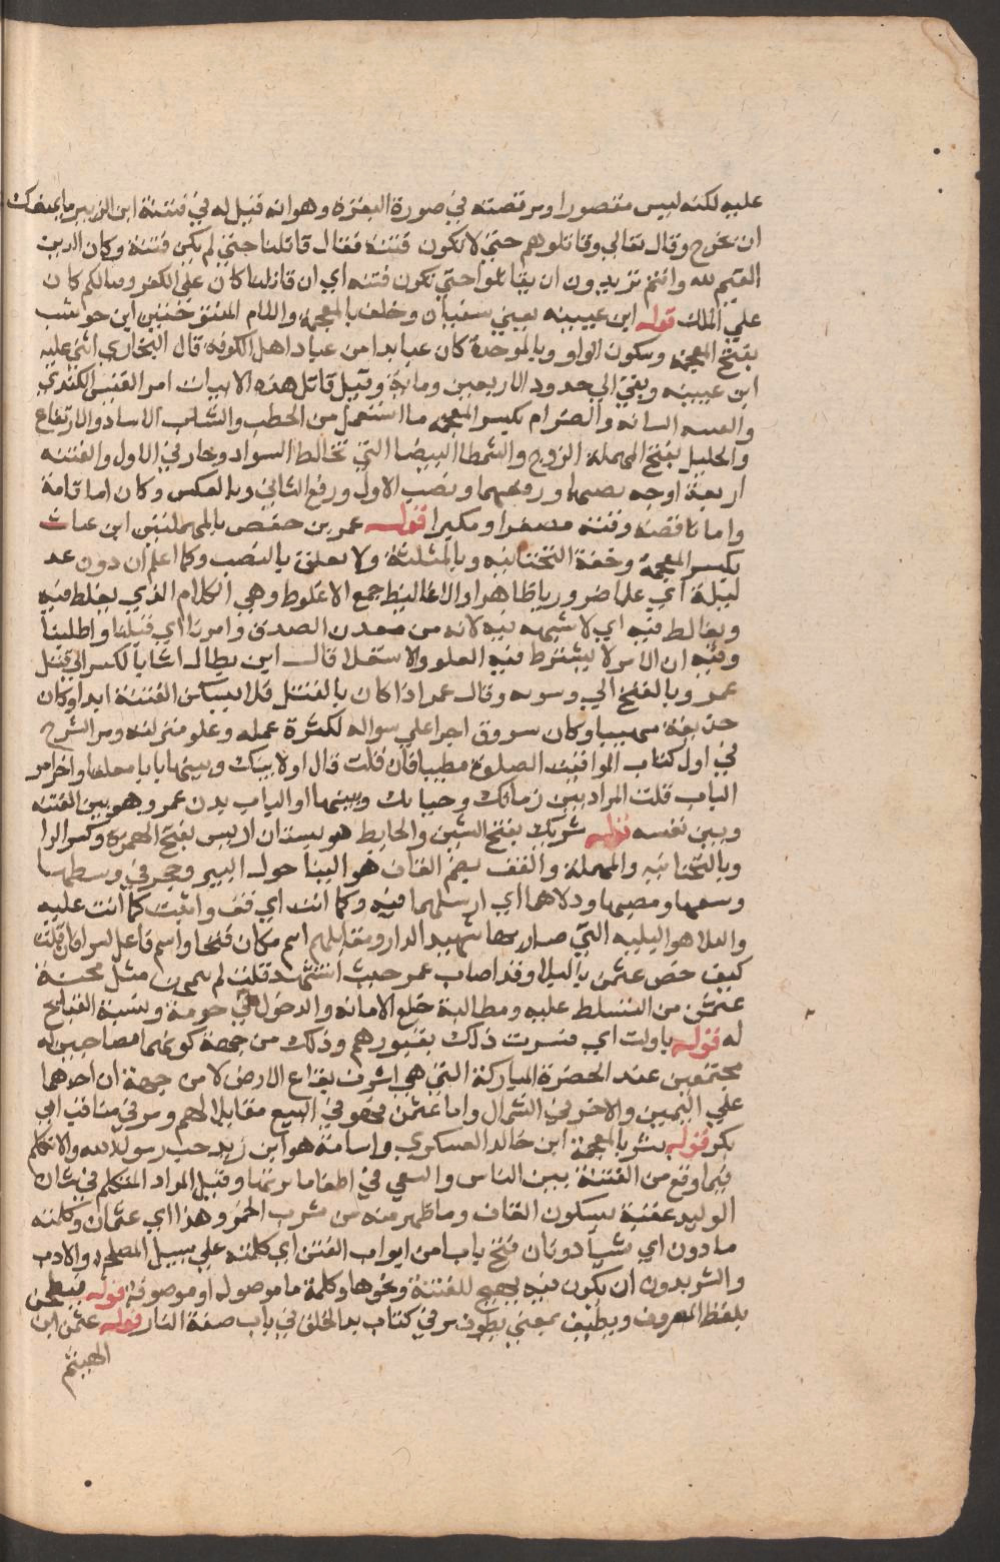 عليه لكنه ليس متصورا ومر قصته في صورة البقرة وهو انه قيل له في فتنة ابن الزبير ما يمنعك
ان تخرج وقال تعالي وقاتلوهم حتي لا تكون فتنة فقال قاتلنا حتي لم يكن فتنة وكان الدين
القيم لله وانتم تريدون ان يقاتلوا حتي تكون فتنه اي ان قاتلنا كان علي الكفر وقتالكم كان
علي الملك قوله ابن عيينه يعني سفيان وخلف بالمعجمة واللام المفتوحتين ابن حوشب
بفتح المعجمة وسكون الواو وبالموحدة كان عابدا من عباد اهل الكوفة قال البخاري اثني عليه
ابن عيينه وبقي الي حدود الاربعين ومائة وقيل قائل هذه الابيات امرا القيس الكندي
والفتية الشابه والضرام بكسر المعجمه ما اشتعل من الحطب والشاب الايقاد والارتفاع
والحليل بفتح المهملة الزوج والشمطا البيضا التي تخالط السواد وجاز في الاول والفتنه
اربعة اوجه نصبهما ورفعهما ونصب الاول ورفع الثاني وبالعكس وكان اما تامة
واما ناقصة وفتنة مصغرا ومكبرا قوله عمر بن حفص بالمهملتين ابن غياث
بكسر المعجمة وخفة التحتانيه وبالمثلثة ولا تعلق بالنصب وكما اعلم ان دون غد
ليلة اي علما ضروريا ظاهرا والاغاليط جمع الاغلوط وهي الكلام الذي يغلط فيه
ويغالط فيه اي لا شبهه فيه لانه من معدن الصدق وامرنا اي قبلنا واطلبنا
وفيه ان الامر لا يشترط فيه العلو والاستعلا قال ابن بطال اشار بالكسر الي قتل
عمر وبالفتح الي موته وقال عمر اذا كان بالقتل فلا يسكن الفتنة ابدا وكان
حذيفة مهيبا وكان مسروق اجرا علي سواله لكثرة عمله وعلو منزلته ومر الشرح
في اول كتاب المواقيت الصلوة مطنبا فان قلت قال اولا بينك وبينها بابا مغلقا واخرا مر
الباب قلت المراد بين زمانك وحياتك وبينهما او الباب بدن عمر وهو بين الفتنه
وبين نفسه قوله شريك بفتح الشين والحايط هو بستان اريس بفتح الهمزة وكسر الرا
وبالتحتانيه والمهملة والقف بضم القاف هو البنا حول البير وحجر في وسطها
وشفيرها ومصبها ودلاهما اي ارسلهما فيه وكما انت اي قف واثبت كما انت عليه
والبلا هو البليه التي صار بها شهيد الدار ومقابلهم اسم مكان فتحا واسم فاعل كسرا فان قلت
كيف خص عثمن بالبلا وقد اصاب عمر حيث استشهد قلت لم يمتحن مثل محنة
عثمن من التسلط عليه ومطالبة خلع الامامه والدخول في حرمه ونسبة القبايح
له قوله فاولت اي فسرت ذلك بقبورهم وذلك من جهة كونهما مصاحبين له
مجتمعين عند الحضرة المباركة التي هي اشرف بقاع الارض لا من جهة ان احدهما
علي اليمين والاخر في الشمال واما عثمن فهو في البقيع مقابلا لهم ومر في مناقب ابي
بكر قوله بشر بالمعجمة ابن خالد العسكري واسامة هو ابن زيد حب رسول الله والا تكلم
فيما وقع من الفتنة بين الناس والسعي في اطفا نائرتها وقيل المراد التكلم في شان
الوليد عقبة بسكون القاف وما ظهر منه من شرب الخمر وهذا اي عثمان وكلمته
مادون اي شيآ دونان فتح باب من ابواب الفتن اي كلمته علي سبيل المصلحه والادب
والشر بدون ان يكون فيه يهيج للفتنة ونحوها وكلمة ما موصوله او موصوفة قوله فيطحن
بلفظ المعروف ويطيف بمعني يطوف مر في كتاب بدء الخلق في باب صفة النار قوله عثمن ابن
الهيثم